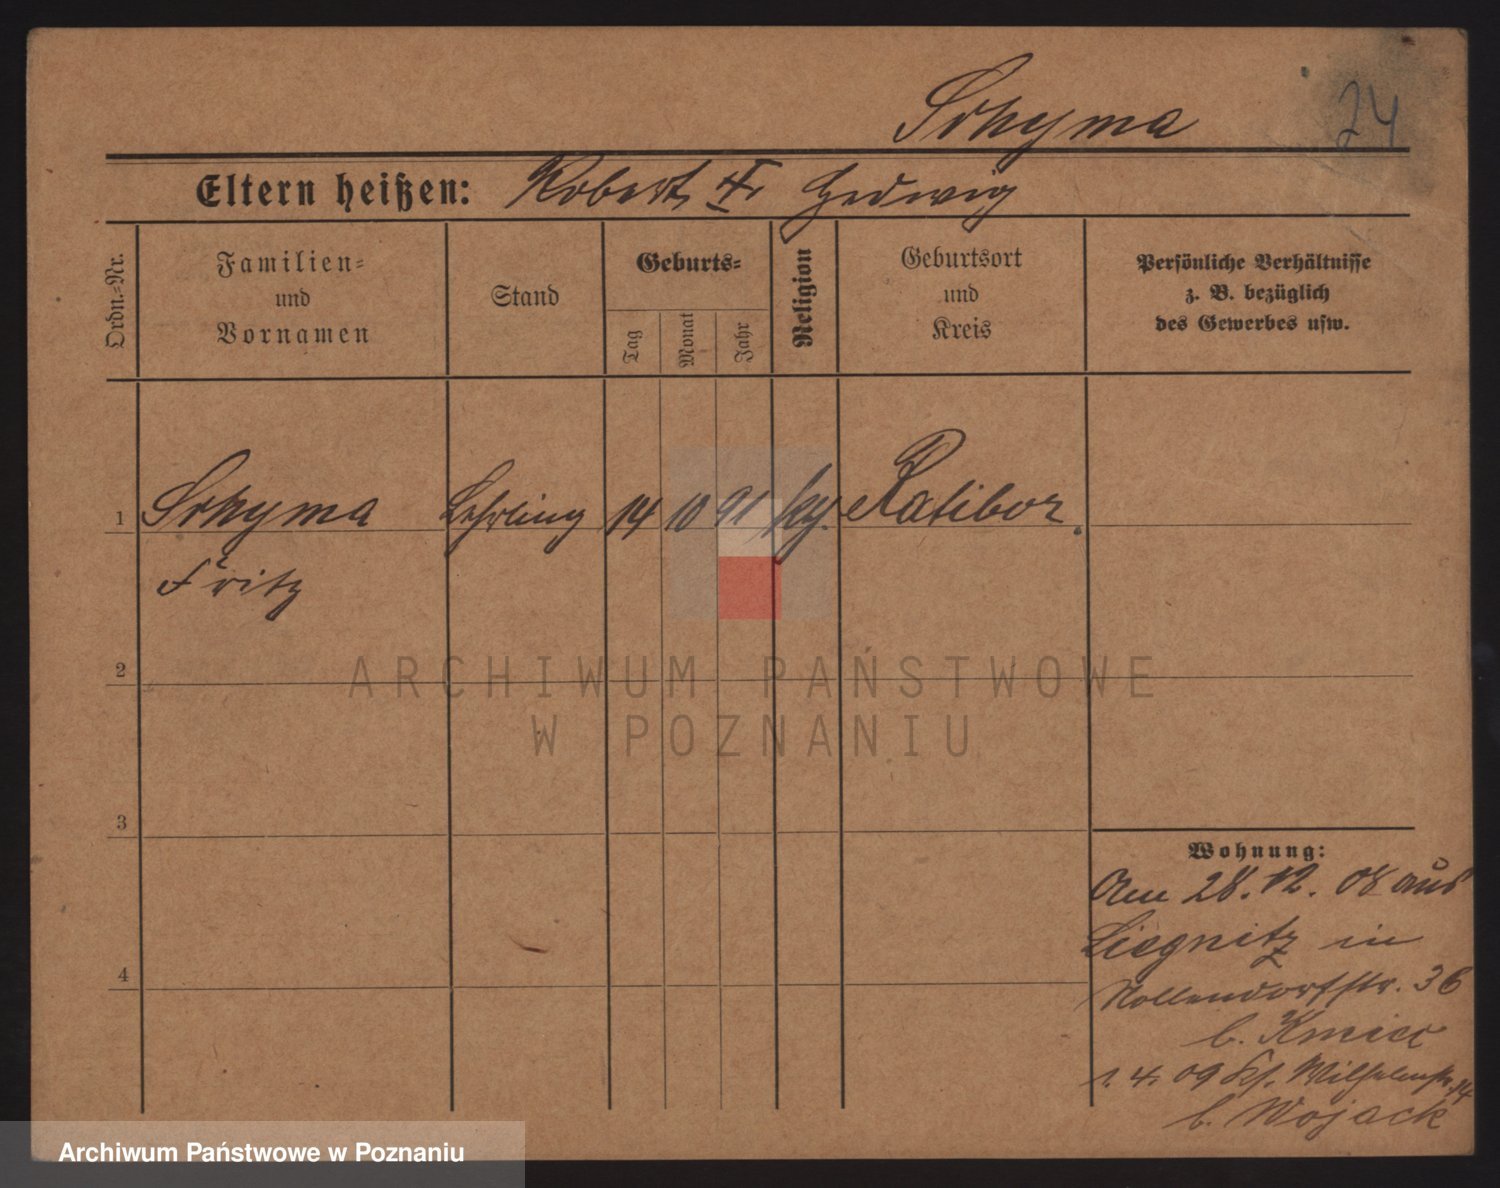 Schyma 24
Eltern heißen: Robert u. Hedwig
Ordn.-Nr.
Familien-
und
Vornamen
Stand
Geburts-
Tag
Monat
Jahr
Religion
Geburtsort
und
Kreis
Persönliche Verhältnisse
z. B. bezüglich
des Gewerbes usw.
1 Schyma Lehrling 14 10 91 kg. Ratibor.
Fritz
2
3
4
Wohnung:
Am 28. 12. 08 aus
Liegnitz in
Nollendorfstr. 36
b. Kmiec
1. 4. 09 Wilhelmstr. 14
b. Wojack
ARCHIWUM PAŃSTWOWE
W POZNANIU
Archiwum Państwowe w Poznaniu